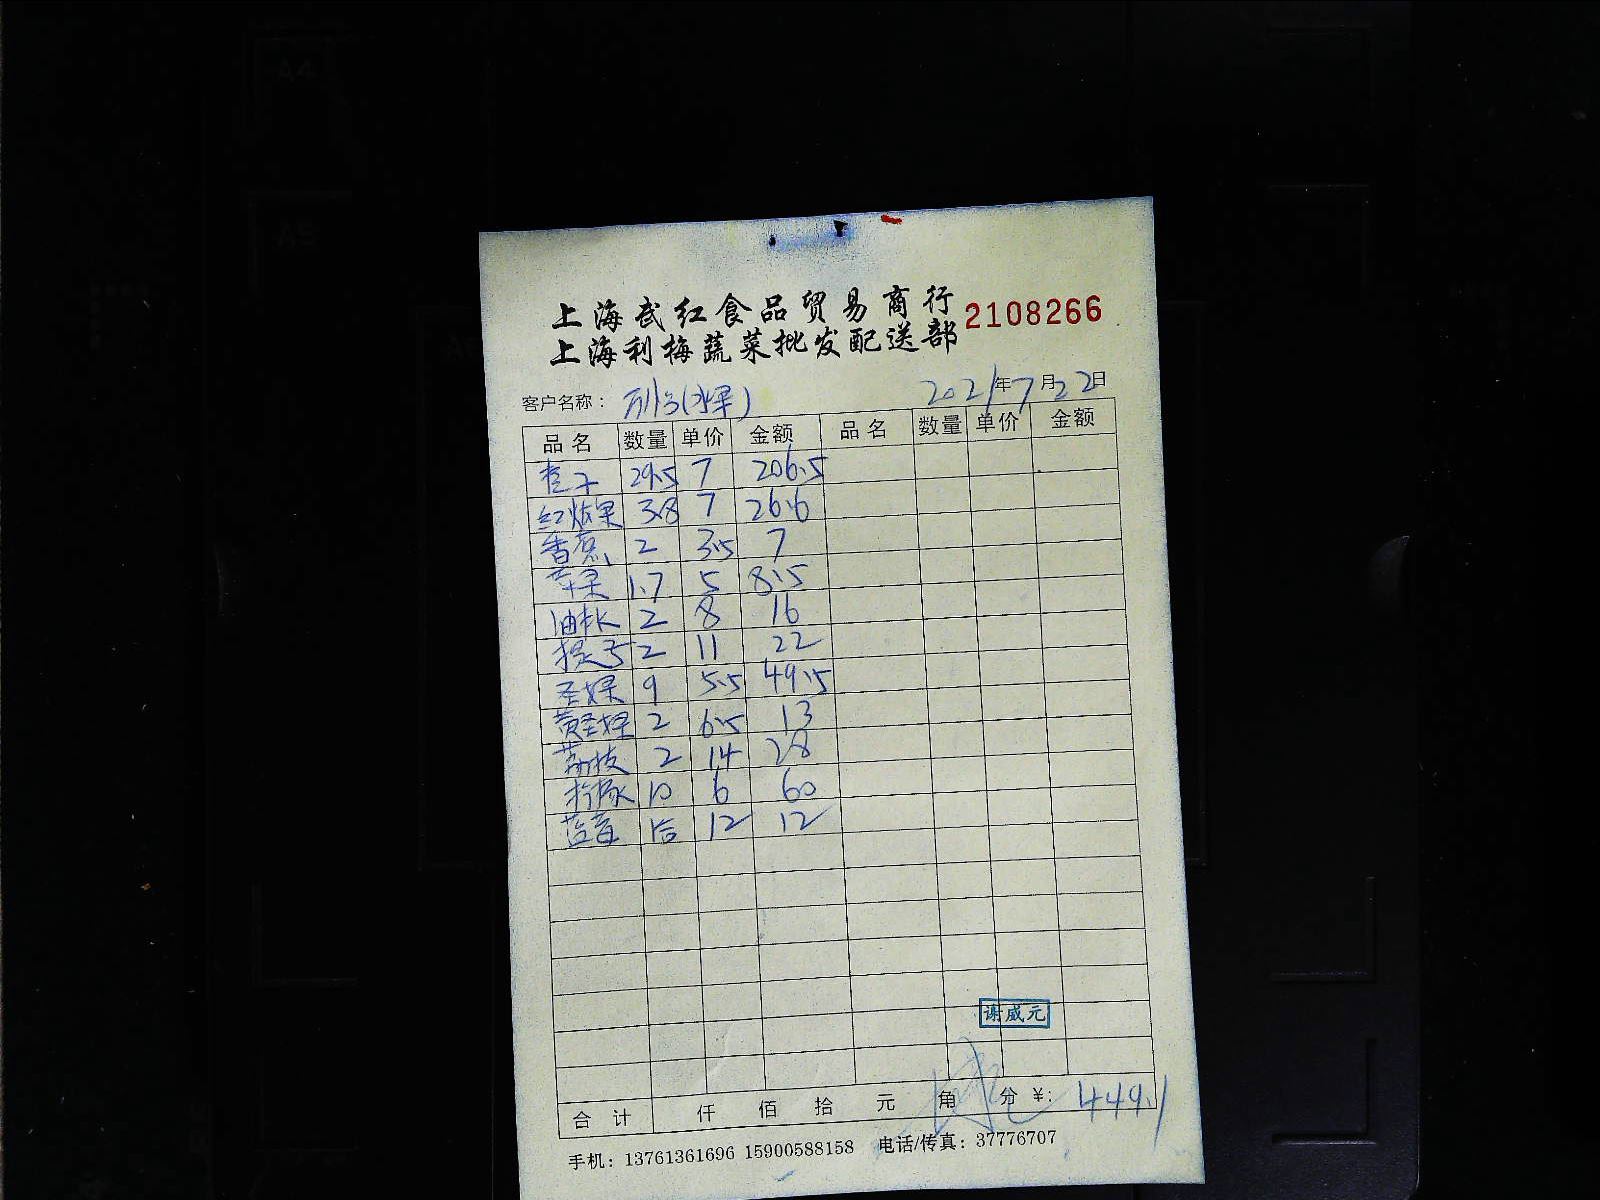 上海武红食品贸易商行
2108266
上海利梅蔬菜批发配送部
客户名称： (水果) 2021年7月22日
品名 数量 单价 金额 品名 数量 单价 金额
29.5 7 206.5
红烛果 3.8 7 26.6
香蕉 2 3.5 7
苹果 1.7 5 8.5
油桃 2 8 16
提子 2 11 22
圣女果 9 5.5 49.5
黄圣女果 2 6.5 13
荔枝 2 14 28
柠檬 10 6 60
蓝莓 1合 12 12
谢威元
合计 仟 佰 拾 元 角 分 ¥: 449.1
手机：13761361696 15900588158 电话/传真：37776707